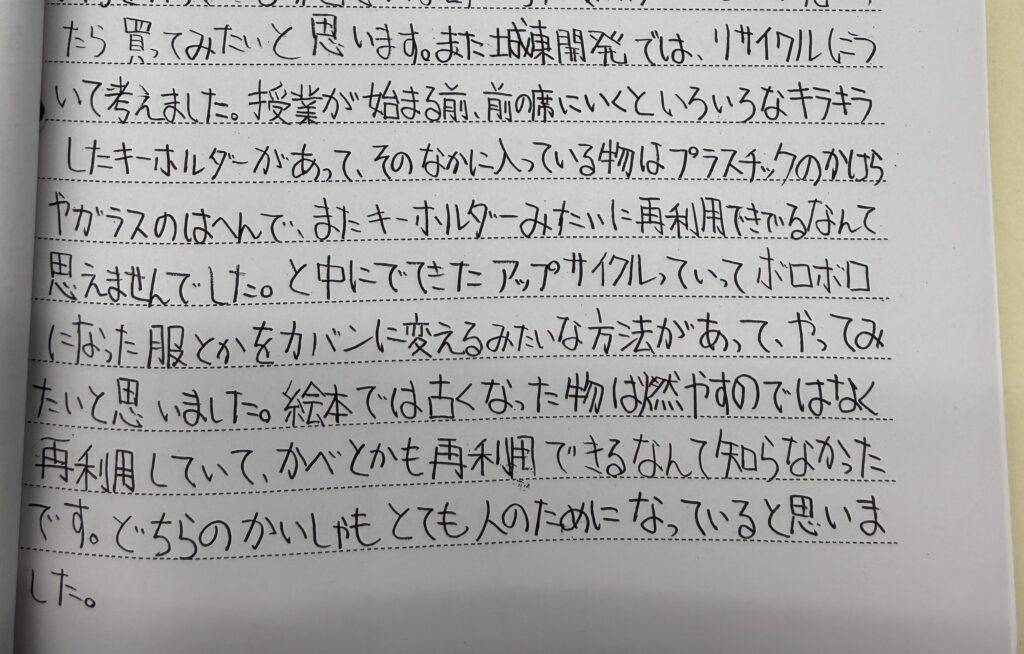 たら買ってみたいと思います。また城東開発では、リサイクルにつ
いて考えました。授業が始まる前、前の席にいくといろいろなキラキラ
したキーホルダーがあって、そのなかに入っている物はプラスチックのかけら
やガラスのはへんで、またキーホルダーみたいに再利用できでるなんて
思えませんでした。と中にでてきたアップサイクルっていってボロボロ
になった服とかをカバンに変えるみたいな方法があって、やってみ
たいと思いました。絵本では古くなった物は燃やすのではなく
再利用していて、かべとかも再利用できるなんて知らなかった
です。どちらのかいしゃもとても人のためになっていると思いま
した。